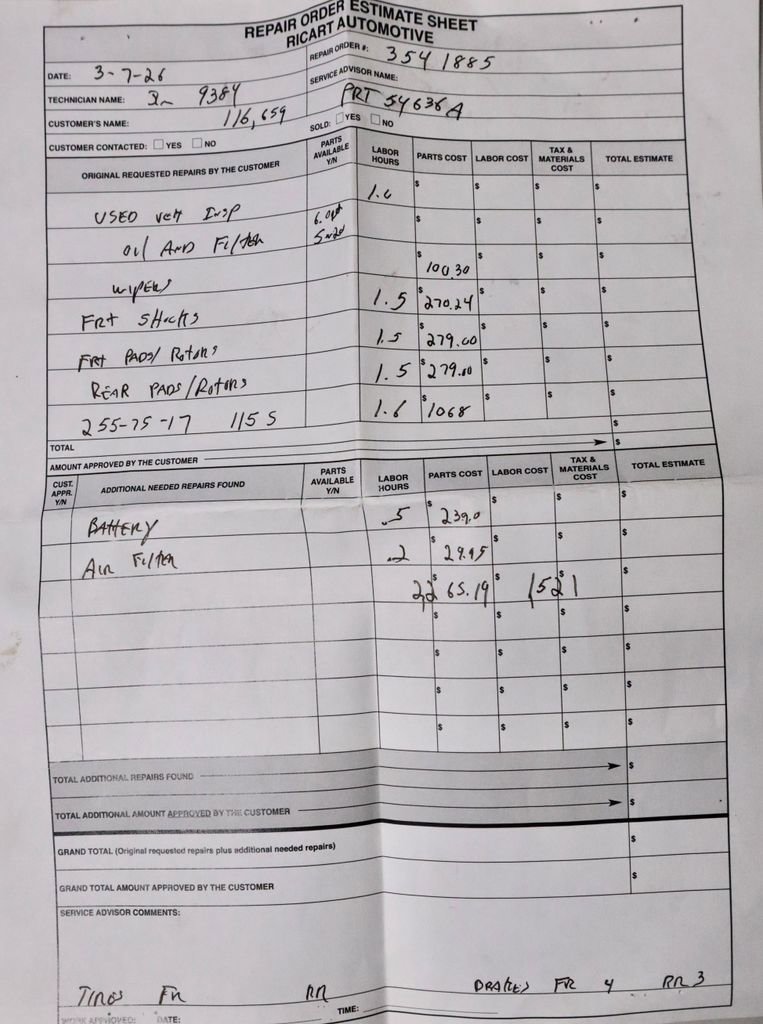 REPAIR ORDER ESTIMATE SHEET
RICART AUTOMOTIVE
DATE: 3-7-26 REPAIR ORDER #: 3541885
TECHNICIAN NAME: 9384 SERVICE ADVISOR NAME:
CUSTOMER'S NAME: 116,659 PRT 54636A
CUSTOMER CONTACTED: YES NO SOLD: YES NO
ORIGINAL REQUESTED REPAIRS BY THE CUSTOMER PARTS AVAILABLE Y/N LABOR HOURS PARTS COST LABOR COST TAX & MATERIALS COST TOTAL ESTIMATE
USED veH InSP 1.0 $ $ $ $
Oil AND FilteR 6.0qt 5w20 $ $ $ $
wipeRs $ 100.30 $ $ $
FRt SHocks 1.5 $ 270.24 $ $ $
FRt PADS/ RotoRs 1.5 $ 279.00 $ $ $
REAR PADS/RotoRs 1.5 $ 279.00 $ $ $
255-75-17 115 S 1.6 $ 1068 $ $ $
TOTAL $
AMOUNT APPROVED BY THE CUSTOMER $
CUST. APPR. Y/N ADDITIONAL NEEDED REPAIRS FOUND PARTS AVAILABLE Y/N LABOR HOURS PARTS COST LABOR COST TAX & MATERIALS COST TOTAL ESTIMATE
BAttERY .5 $ 239.0 $ $ $
AiR FilteR .2 $ 29.95 $ $ $
$ 2,265.19 $ 1521 $ $
$ $ $ $
$ $ $ $
$ $ $ $
$ $ $ $
TOTAL ADDITIONAL REPAIRS FOUND $
TOTAL ADDITIONAL AMOUNT APPROVED BY THE CUSTOMER $
GRAND TOTAL (Original requested repairs plus additional needed repairs) $
GRAND TOTAL AMOUNT APPROVED BY THE CUSTOMER $
SERVICE ADVISOR COMMENTS:
TIRES FR RR BRAKES FR 4 RR 3
WORK APPROVED: DATE: TIME: